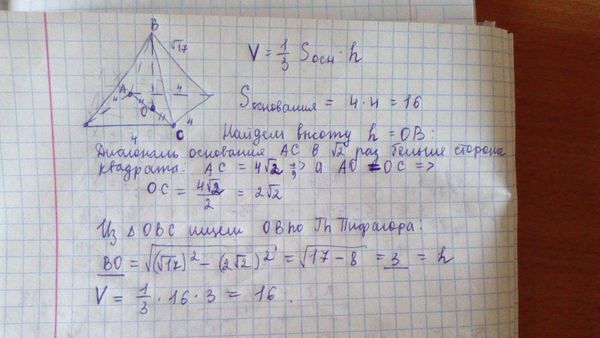 B
√17
A
4
4
4
O
C
4
V = 1/3 Sосн · h
Sоснования = 4·4 = 16
Найдем высоту h = OB:
Диагональ основания AC в √2 раз больше сторона
квадрата: AC = 4√2 => а AO = OC =>
OC = 4√2/2 = 2√2
Из △OBC ищем OB по Th Пифагора:
BO = √((√17)² − (2√2)²) = √(17−8) = 3 = h
V = 1/3 · 16 · 3 = 16.